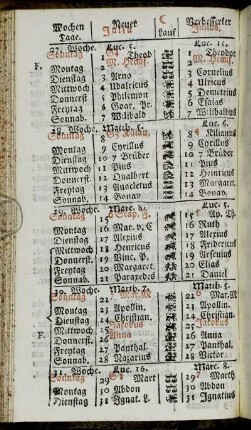 Wochen Neuer Verbesserter
Tage. Julius Lauf Julius,
27. Woche. Luc. 5. Luc. 11.
Sonntag 1 Theod 1 Theodor
F. Montag 2 M. Heims. 2 M. Heims.
Dienstag 3 Arno 3 Cornelius
Mittwoch 4 Ulricus 4 Ulricus
Donnerst 5 Philomon 5 Demetrius
Freytag 6 Goar. Pr. 6 Esaias
Sonnab. 7 Wilibald 7 Willibaldus
28. Woche. Matth. 5. Luc. 6.
Sonntag 8 Kilian 8 Kilianus
Montag 9 Cyrillus 9 Cyrillus
Dienstag 10 7 Brüder 10 7 Brüder
Mittwoch 11 Pius 11 Pius
Donnerst 12 Gualbert 12 Henricus
Freytag 13 Anacletus 13 Margaret.
Sonnab. 14 Bonav 14 Bonav.
29. Woche. Marc. 8. Luc. 5.
Sonntag 15 Scap. F. 15 Ap. Th.
Montag 16 Mar. v. C 16 Ruth
Dienstag 17 Alexius 17 Alexius
Mittwoch 18 Henricus 18 Fridericus
Donnerst 19 Vinc. P. 19 Arsenius
Freytag 20 Margaret. 20 Elias
Sonnab. 21 Paraxedes 21 Daniel
30. Woche. Matth. 7. Matth. 5.
Sonntag 22 Mar. M 22 Mar. M
Montag 23 Apollin. 23 Apollin.
Dienstag 24 Christian. 24 Christian.
Mittwoch 25 Jacobus 25 Jacobus
F. Donnerst 26 Anna 26 Anna
Freytag 27 Panthal. 27 Panthal.
Sonnab. 28 Nazarius 28 Victor.
31. Woche. Luc. 16. Marc. 8.
Sonntag 29 Mart 29 Martha
Montag 30 Abdon 30 Abdon
Dienstag 31 Ignat. L. 31 Ignatius